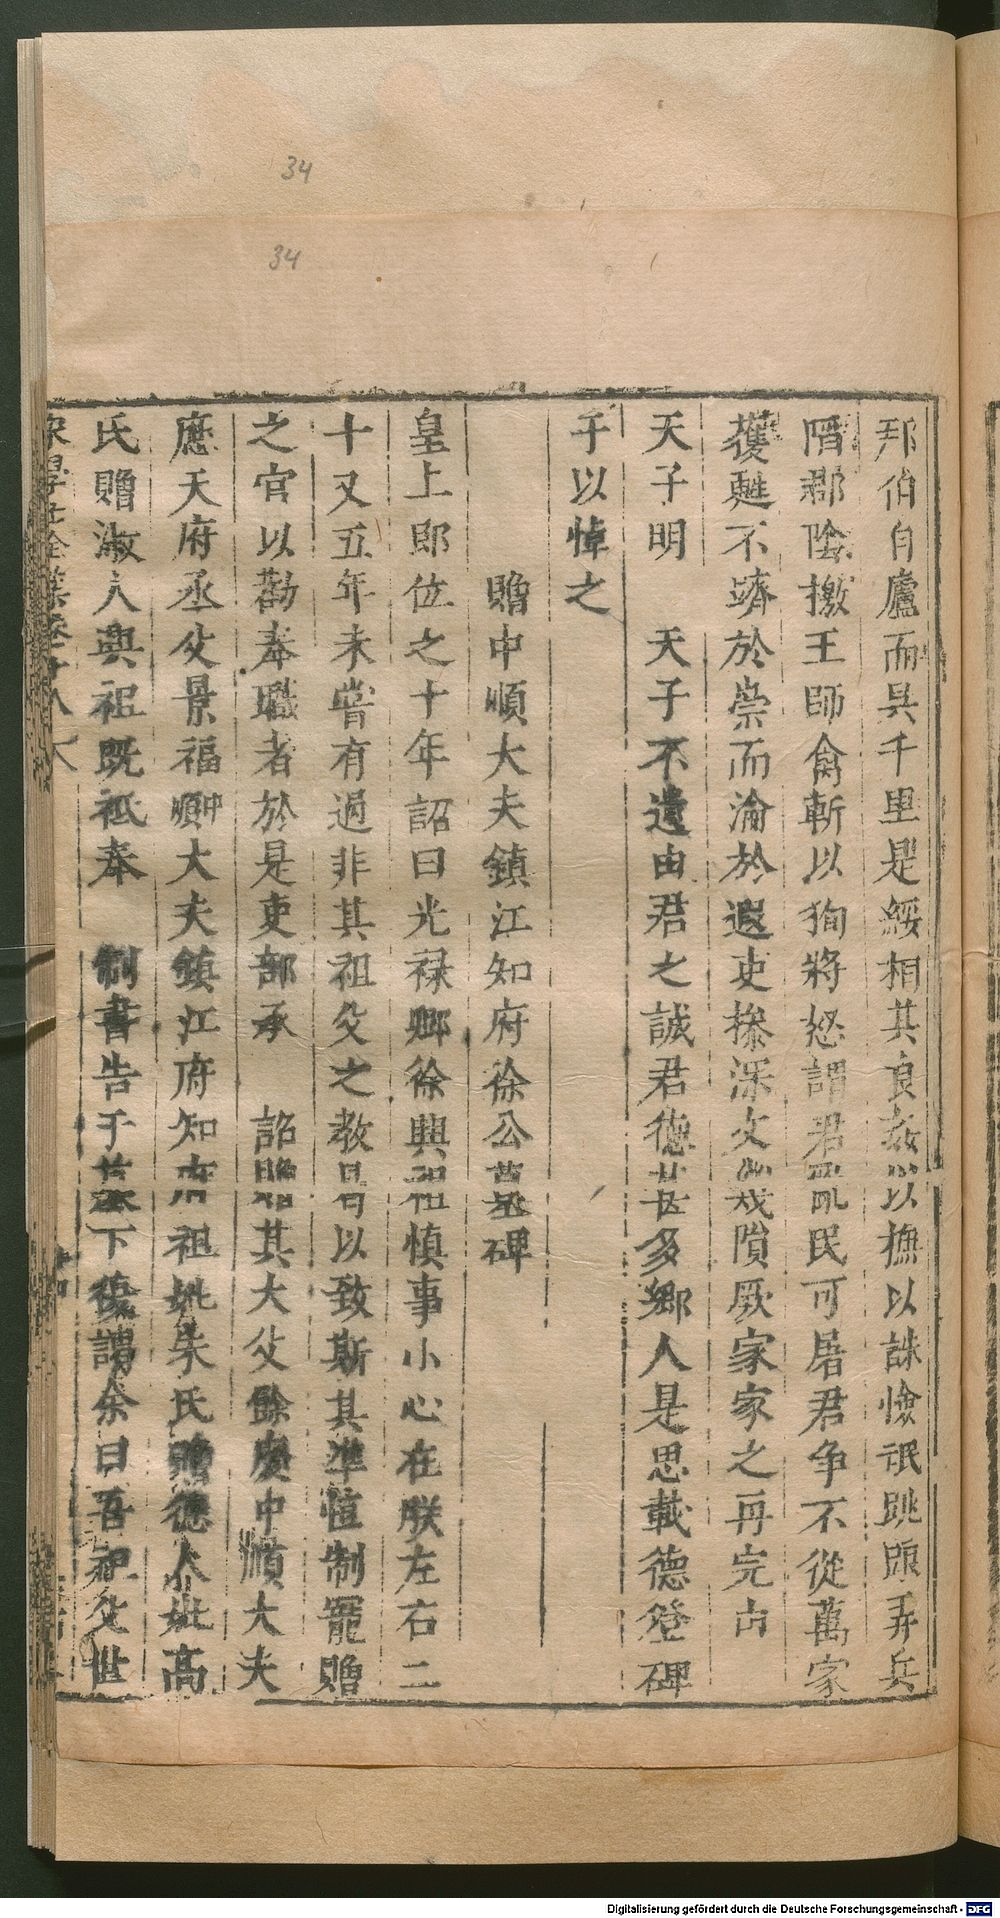 34
34
邦伯自廬而吳千里是綏相其良姦以撫以誅憸氓跳踉弄兵
階郡陰撽王師禽斬以狥將怒謂君亂民可屠君爭不從萬家
獲甦不躋於崇而淪於遐吏摻深文幾隕厥家家之再完由
天子明　天子不遺由君之誠君德甚多鄉人是思載德登碑
于以悼之
贈中順大夫鎮江知府徐公墓碑
皇上郎位之十年詔曰光祿卿徐興祖慎事小心在朕左右二
十又五年未嘗有過非其祖父之教曷以致斯其準恒制寵贈
之官以勸奉職者於是吏部承　詔贈其大父餘慶中順大夫
應天府丞父景福中順大夫鎮江府知府祖姚朱氏贈德人妣高
氏贈淑人興祖既祗奉　制書告于墓下復謁余曰吾祖父世
宋學士全集卷十八